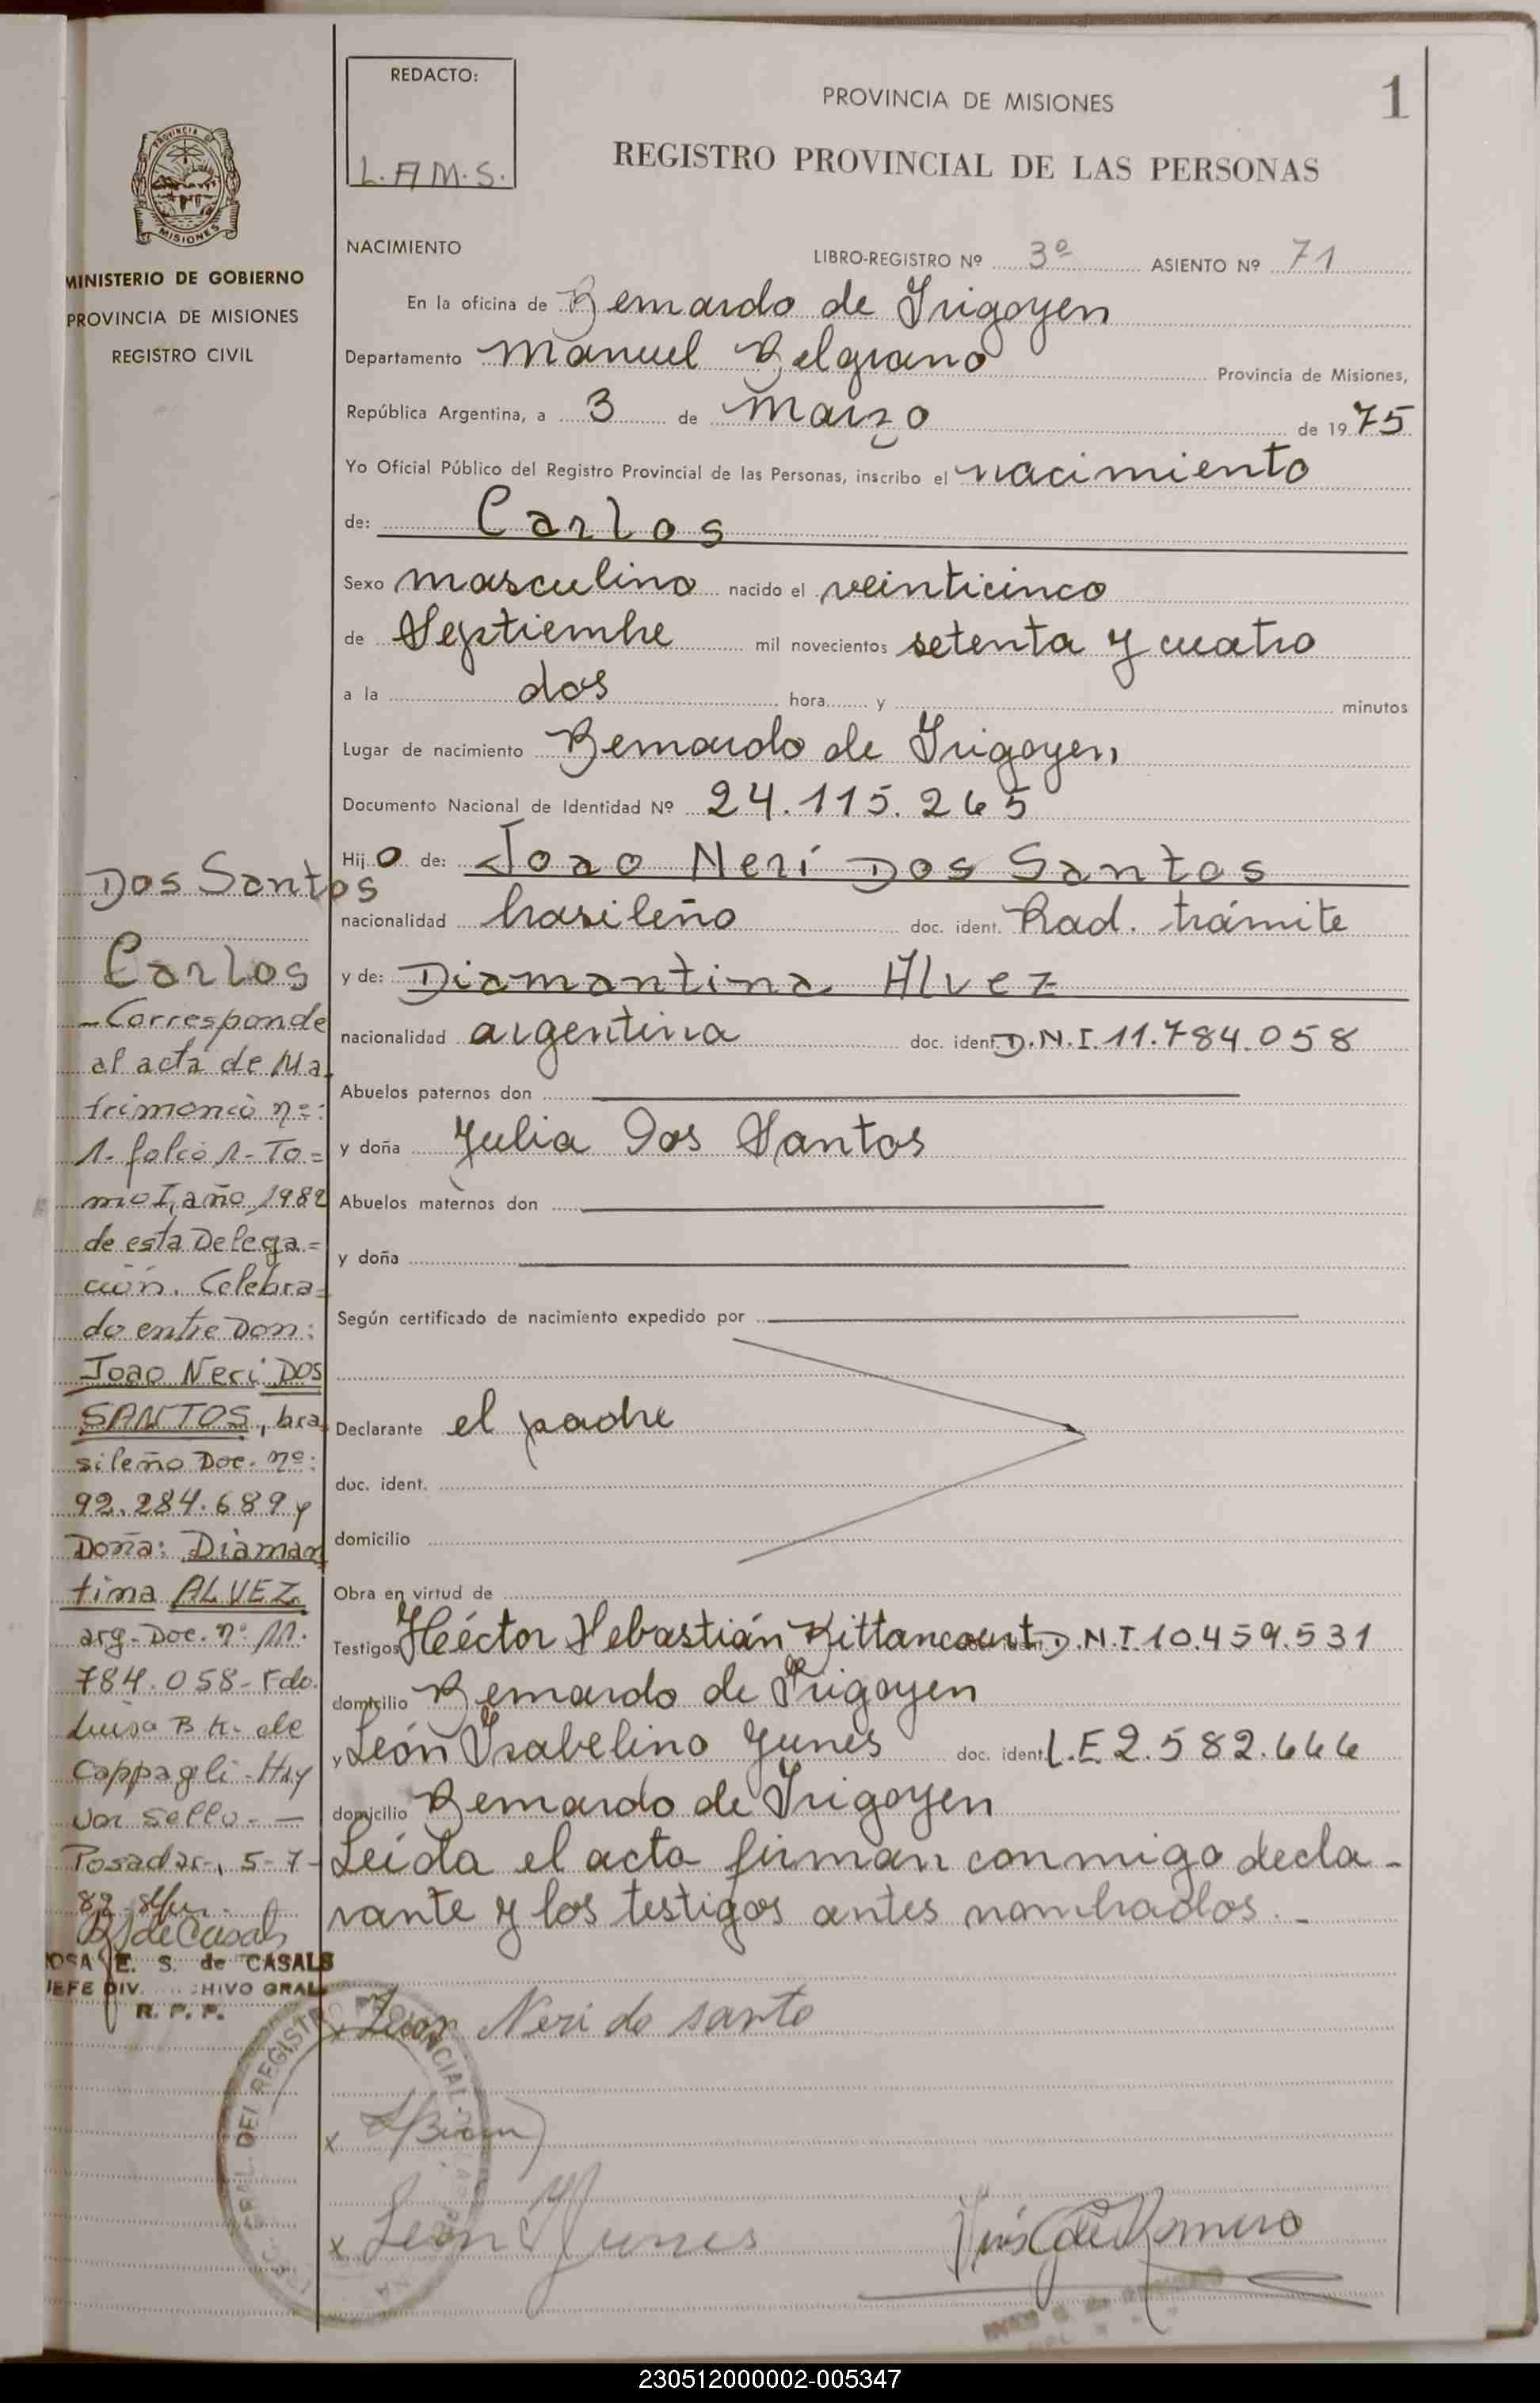 REDACTO:
L.A.M.S.
PROVINCIA DE MISIONES
1
REGISTRO PROVINCIAL DE LAS PERSONAS
PROVINCIA DE
MISIONES
MINISTERIO DE GOBIERNO
PROVINCIA DE MISIONES
REGISTRO CIVIL
NACIMIENTO
LIBRO-REGISTRO Nº 3º ASIENTO Nº 71
En la oficina de Bernardo de Irigoyen
Departamento Manuel Belgrano Provincia de Misiones,
República Argentina, a 3 de Marzo de 1975
Yo Oficial Público del Registro Provincial de las Personas, inscribo el nacimiento
de: Carlos
Sexo masculino nacido el veinticinco
de Septiembre mil novecientos setenta y cuatro
a la dos hora y minutos
Lugar de nacimiento Bernardo de Irigoyen
Documento Nacional de Identidad Nº 24.115.265
Hijo de: Joao Neri Dos Santos
nacionalidad brasileño doc. ident. Rad. trámite
y de: Diamantina Alvez
nacionalidad argentina doc. ident. D.N.I. 11.784.058
Abuelos paternos don
y doña Julia Dos Santos
Abuelos maternos don
y doña
Según certificado de nacimiento expedido por
Declarante el padre
doc. ident.
domicilio
Obra en virtud de
Testigos Héctor Sebastián Bittancourt D.N.I. 10.459.531
domicilio Bernardo de Irigoyen
y León Isabelino Yunes doc. ident. L.E 2.582.666
domicilio Bernardo de Irigoyen
Leída el acta firman conmigo decla-
rante y los testigos antes nombrados.-
Dos Santos
Carlos
-Corresponde
al acta de Ma-
trimonio nº:
1- folio 1- To=
mo I, año 1982
de esta Delega=
ción. Celebra=
do entre Don:
Joao Neri DOS
SANTOS, bra-
sileño Doc. nº:
92.284.689 y
Doña: Diaman
tina ALVEZ
arg- Doc. nº 11.
784.058- Fdo.
Luisa B K. de
Cappagli - Hay
un sello.-
Posadas, 5-7-
82-
ROSA E. S. de CASALS
JEFE DIV. ARCHIVO GRAL
R. P. P.
x Juan Neri do santo
x
x León Yunes
230512000002-005347